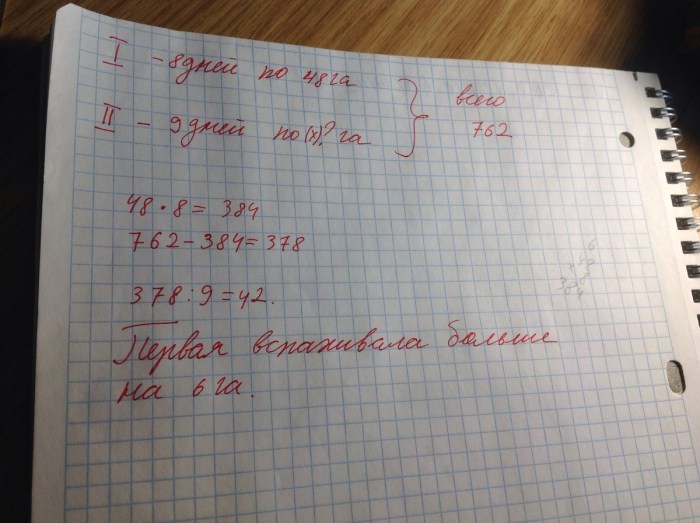 I - 8 дней по 48 га
II - 9 дней по (х)? га
всего
762
48 · 8 = 384
762 - 384 = 378
378 : 9 = 42.
Первая вспахивала больше
на 6 га.